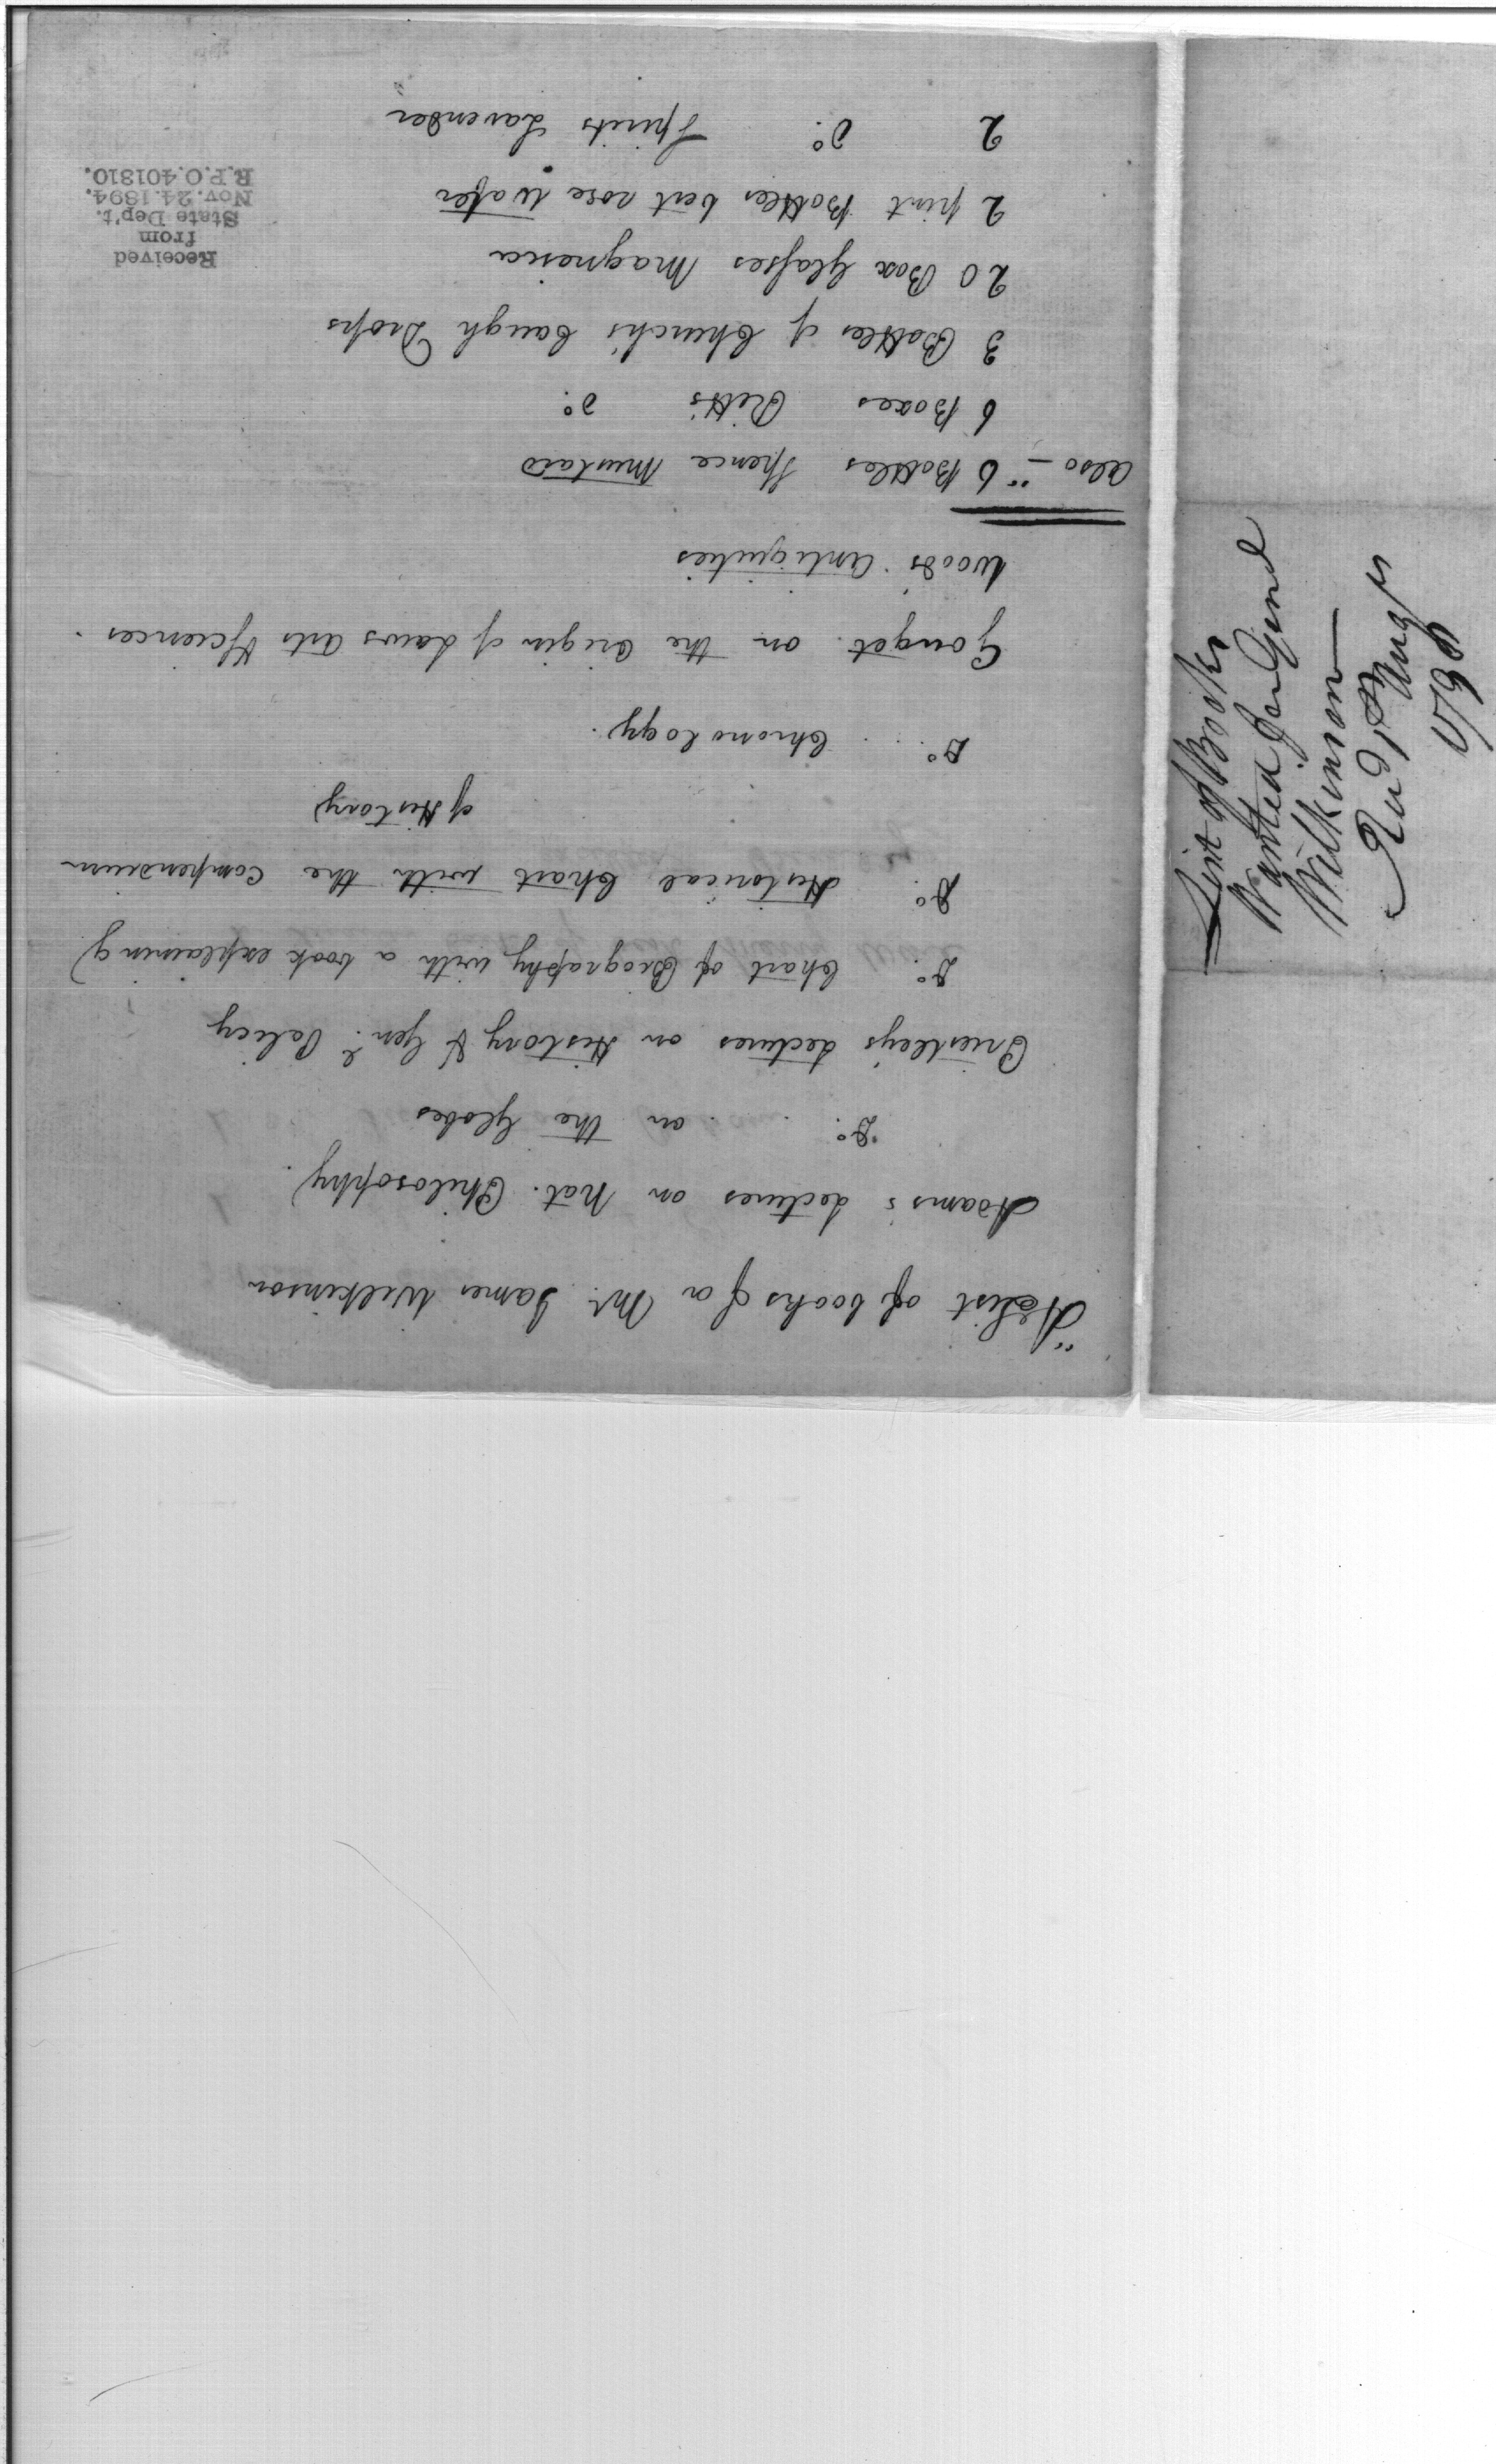 "A List of books for Mr. James Wilkinson
Adams's Lectures on Nat. Philosophy
Do. . . on the Globes
Priestley's Lectures on History & Genl. Policy
Do. Chart of Biography with a book explaining
Do. Historical Chart with the Compendium
of History
Do. . . Chronology.
Gouget on the Origin of Laws Arts & Sciences.
Woods Antiquities
Also — " 6 Bottles Spence Mustard
6 Boxes Pitt's do.
3 Bottles of Church's Caugh Drops
20 Box Glasses Magnesia
2 pint Bottles best rose Water
2 do. Spirits Lavender
Received
from
State Dep't.
Nov. 24. 1894.
R.P.O. 401810.
List of Books
Wanted for Genl
Wilkinson—
Augt
1796